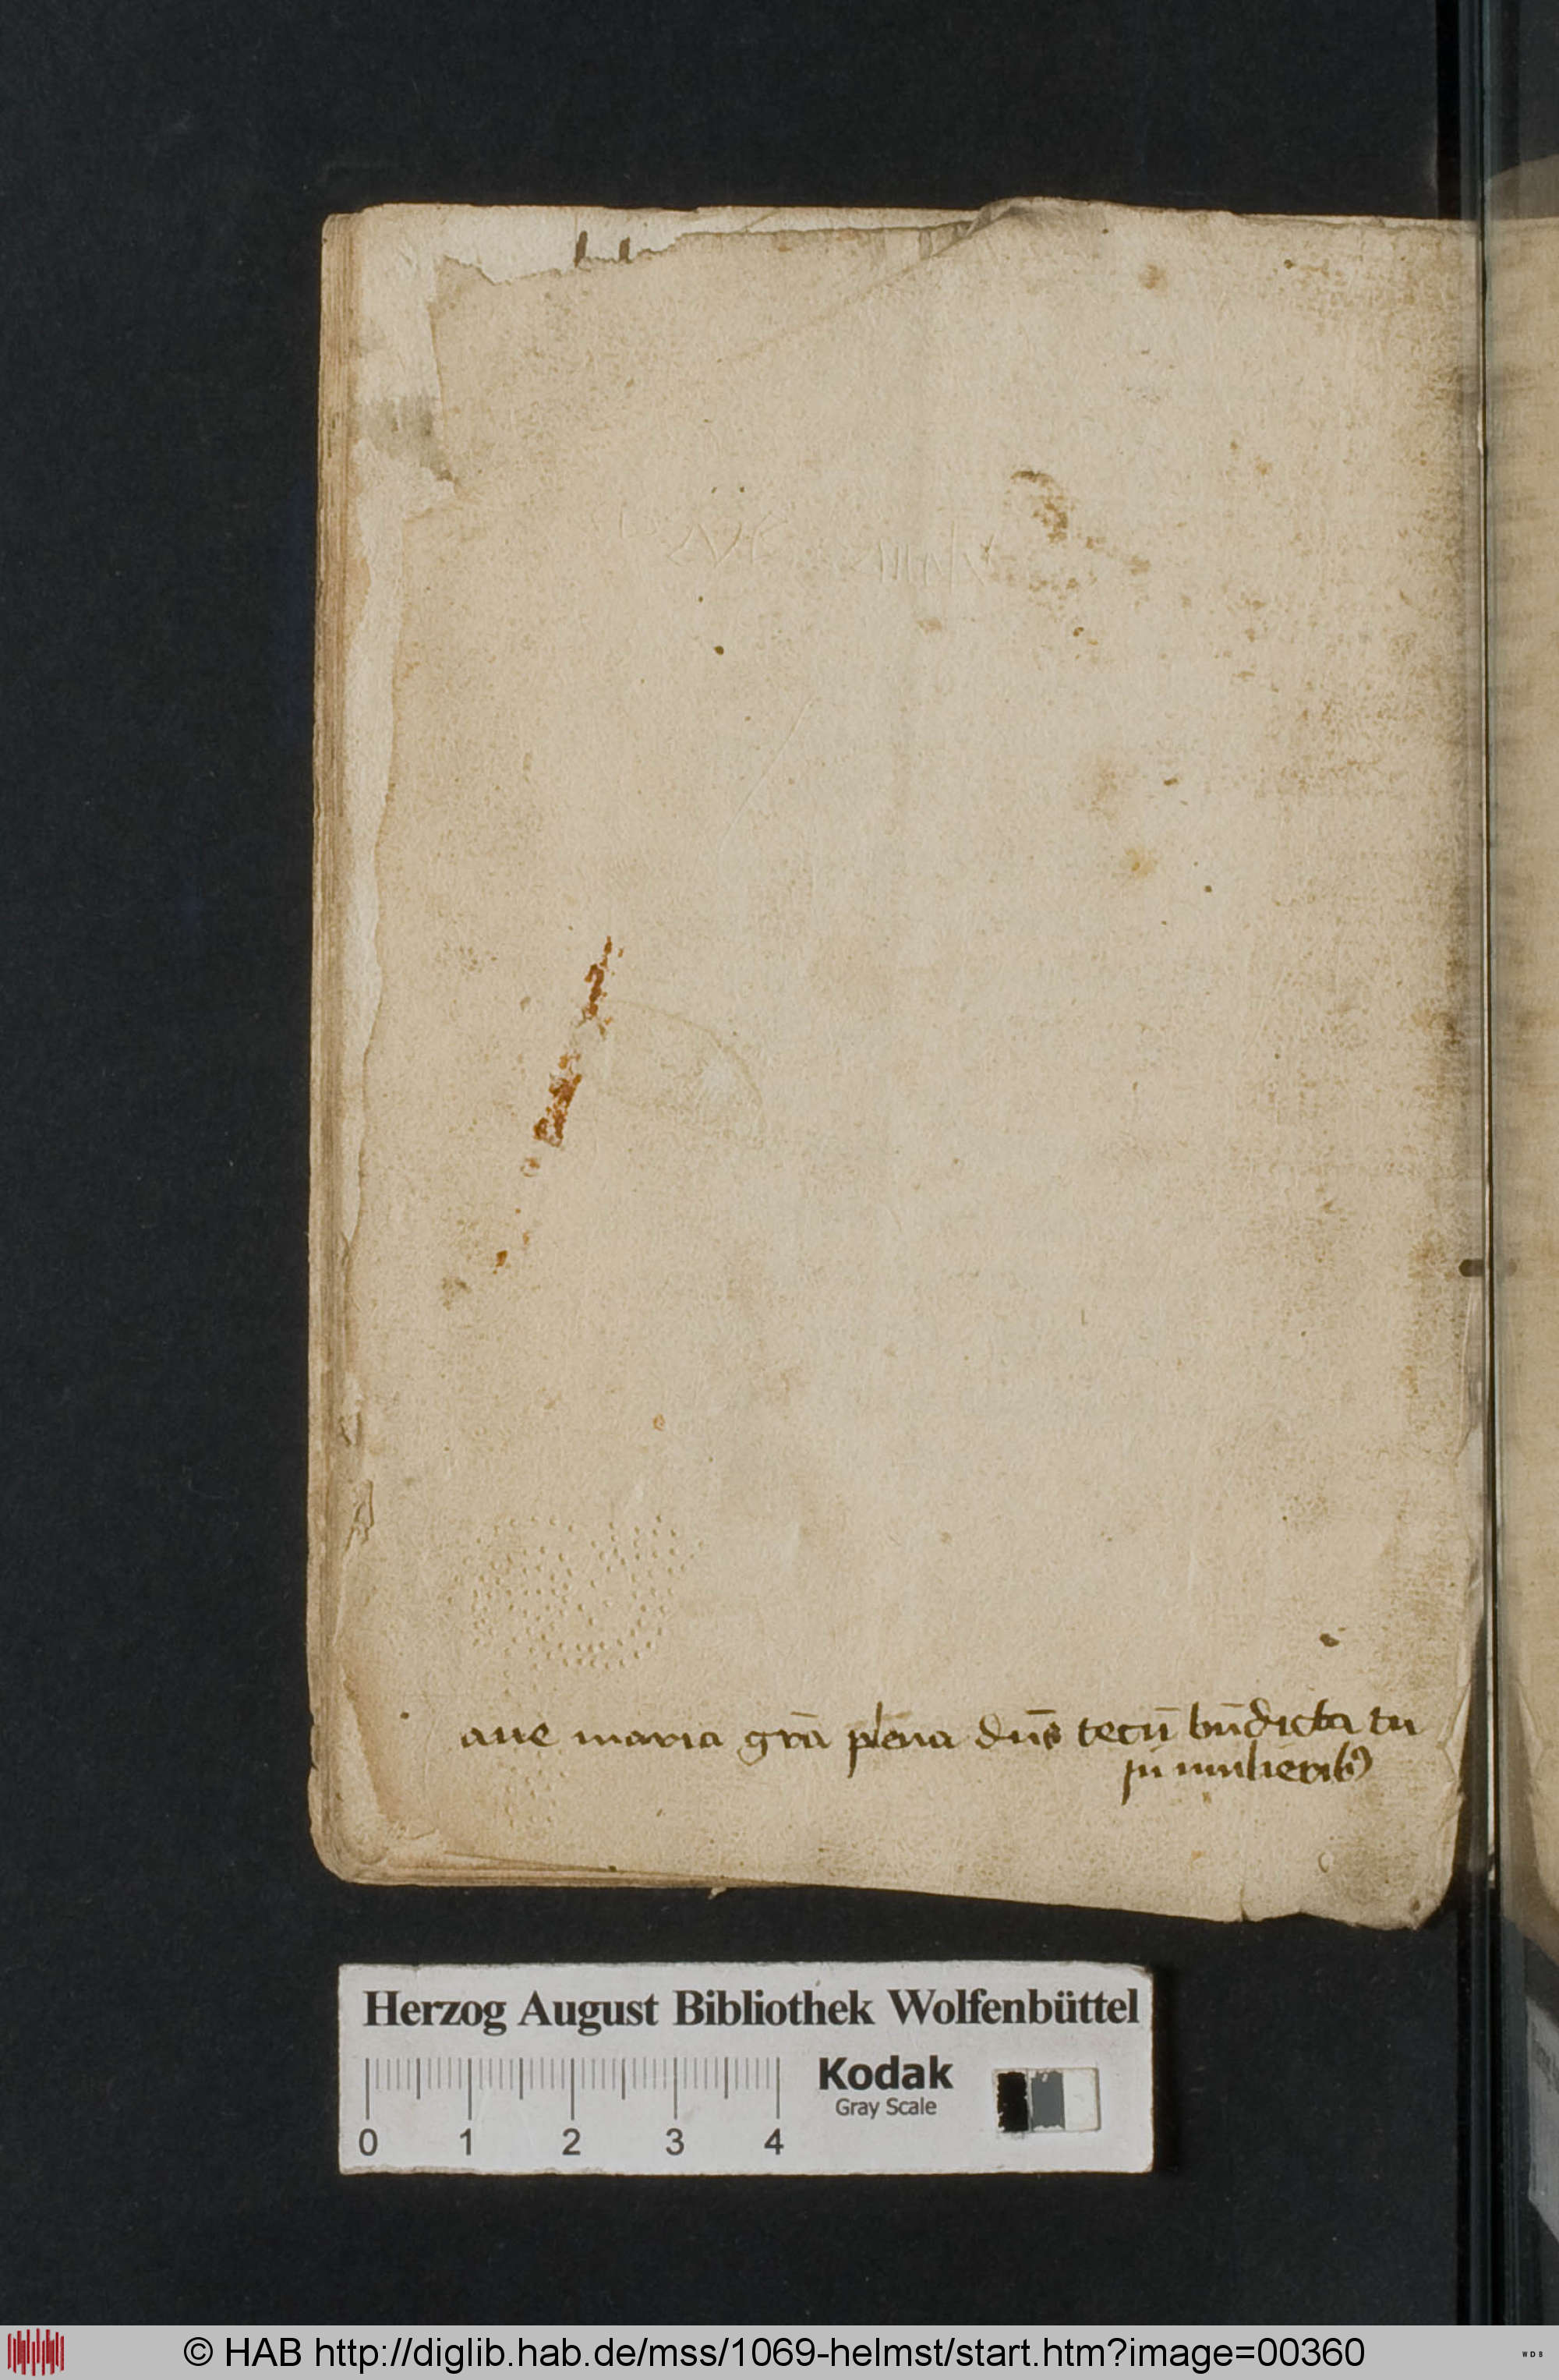 aue maria gr̄a plena dn̄s tecū bn̄dicta tu
in mulierib9
Herzog August Bibliothek Wolfenbüttel
Kodak
Gray Scale
0 1 2 3 4
© HAB http://diglib.hab.de/mss/1069-helmst/start.htm?image=00360
WDB